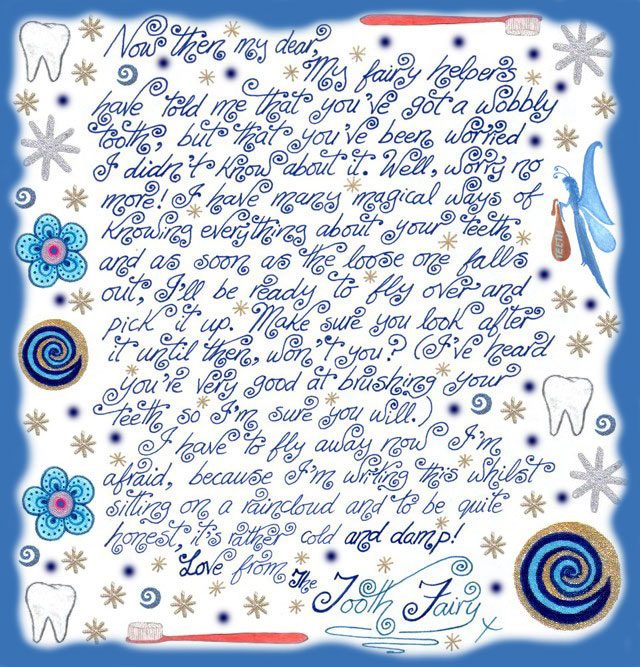 Now then my dear,
My fairy helpers
have told me that you've got a wobbly
tooth, but that you've been worried
I didn't know about it. Well, worry no
more! I have many magical ways of
knowing everything about your teeth
and as soon as the loose one falls
out, I'll be ready to fly over and
pick it up. Make sure you look after
it until then, won't you? (I've heard
you're very good at brushing your
teeth so I'm sure you will.)
I have to fly away now I'm
afraid, because I'm writing this whilst
sitting on a raincloud and to be quite
honest, it's rather cold and damp!
Love from The
Tooth Fairy x
TEETH